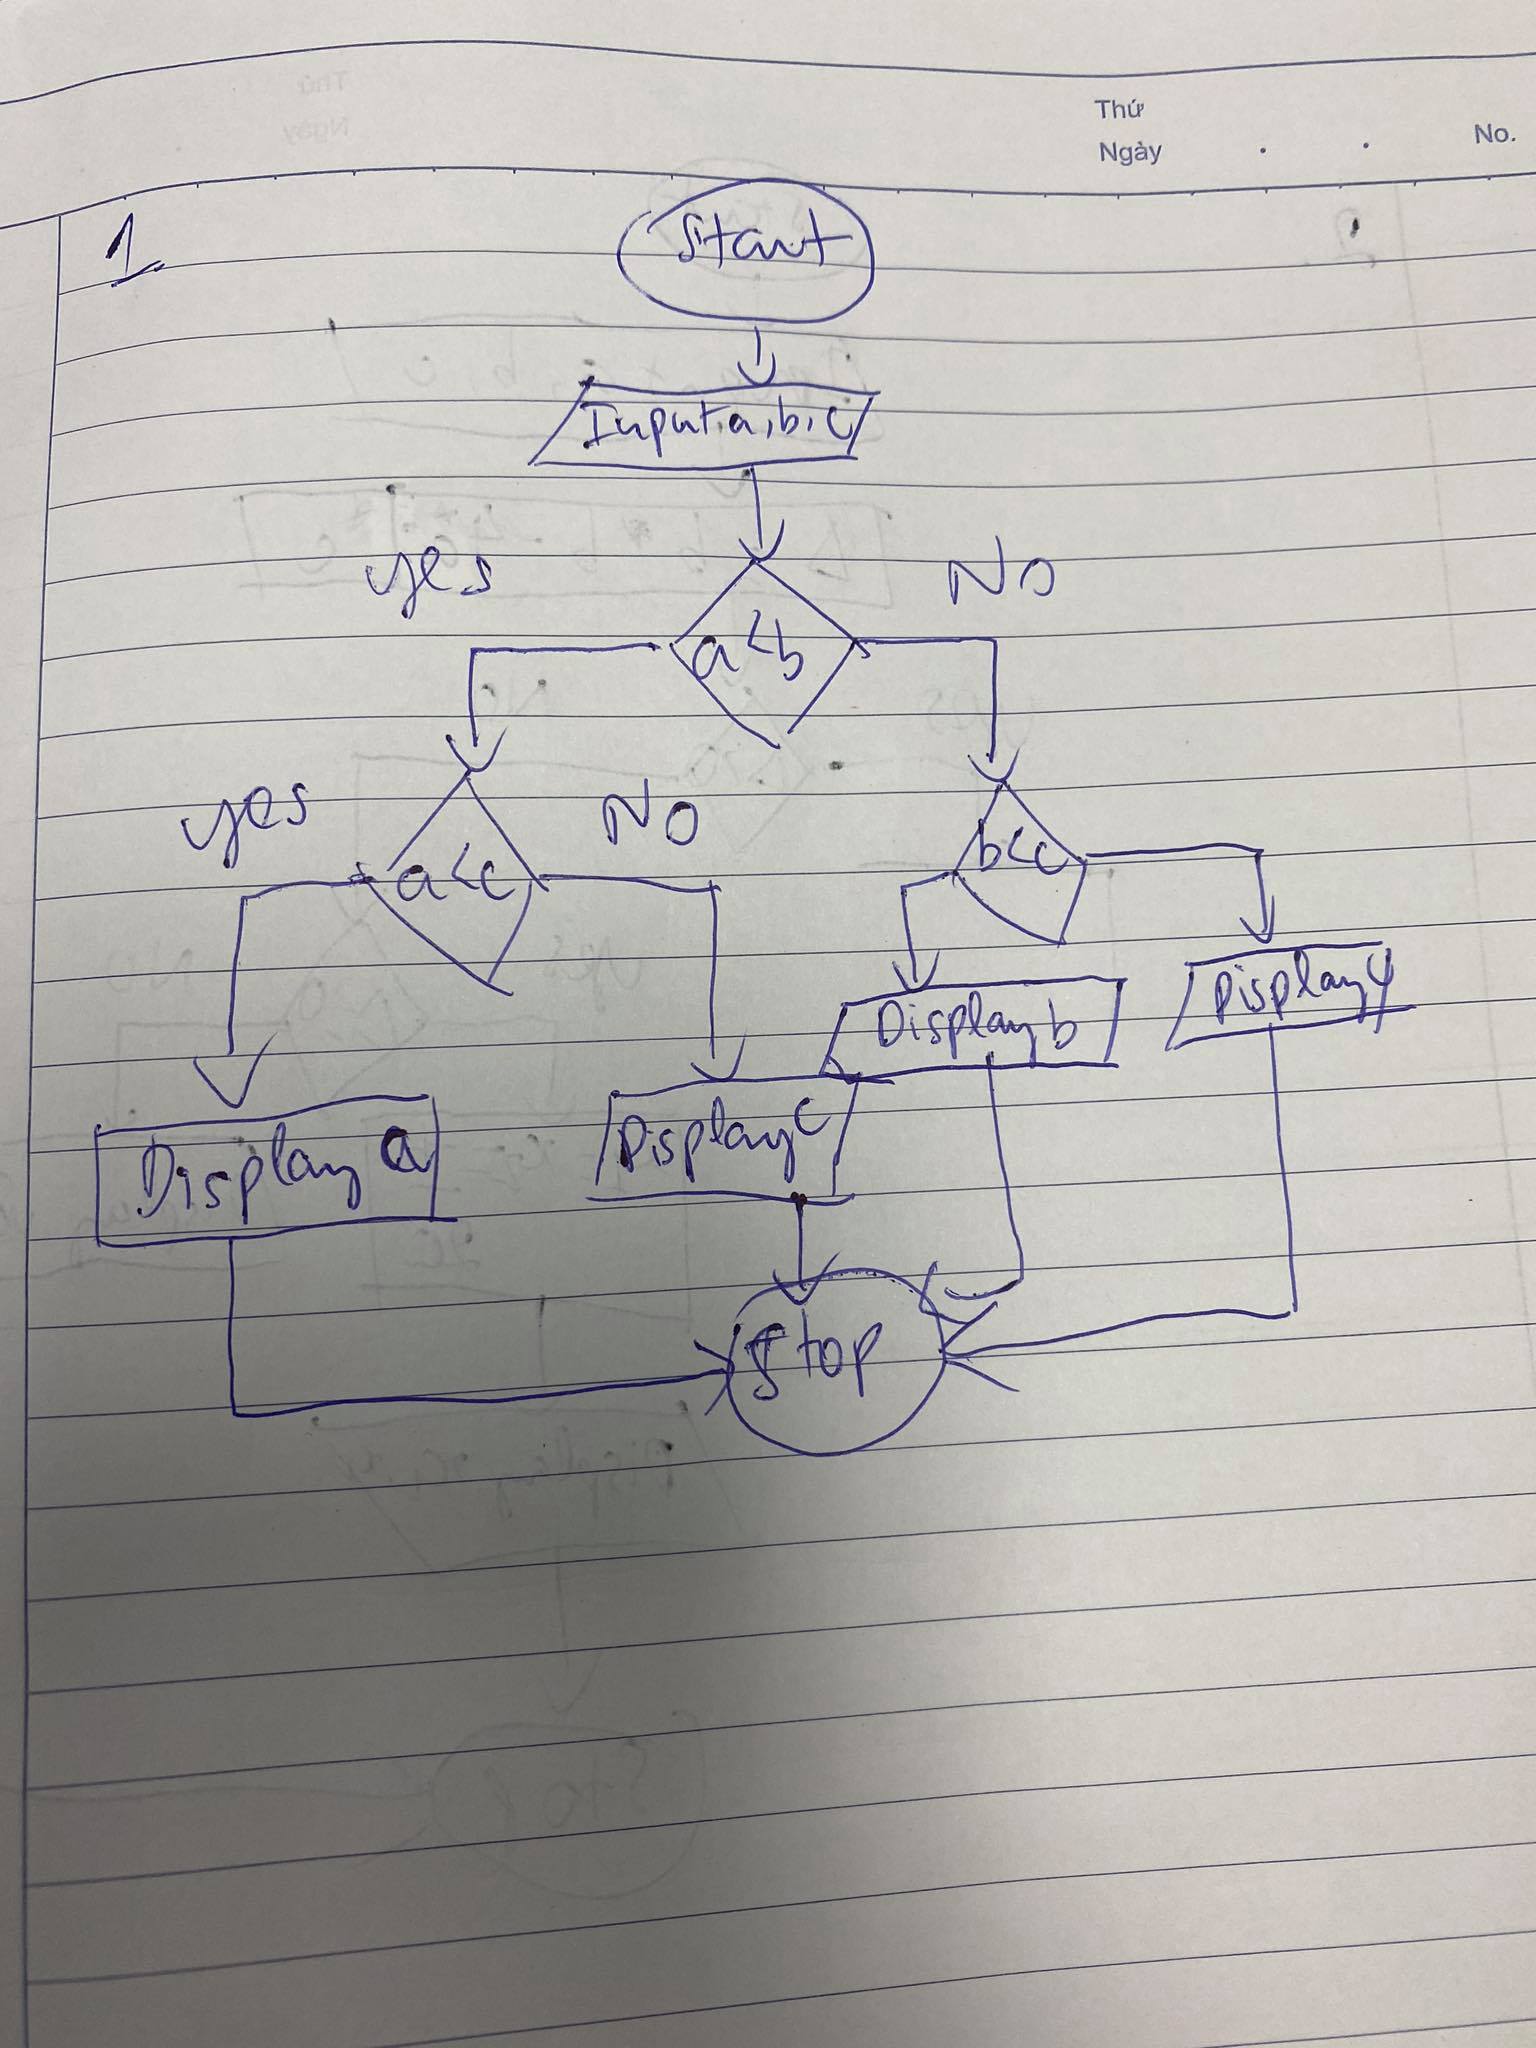 Thứ
Ngày . . No.
1
Start
Input a, b, c
yes No
a<b
yes No
a<c b<c
Display b Display c
Display a Display c
Stop